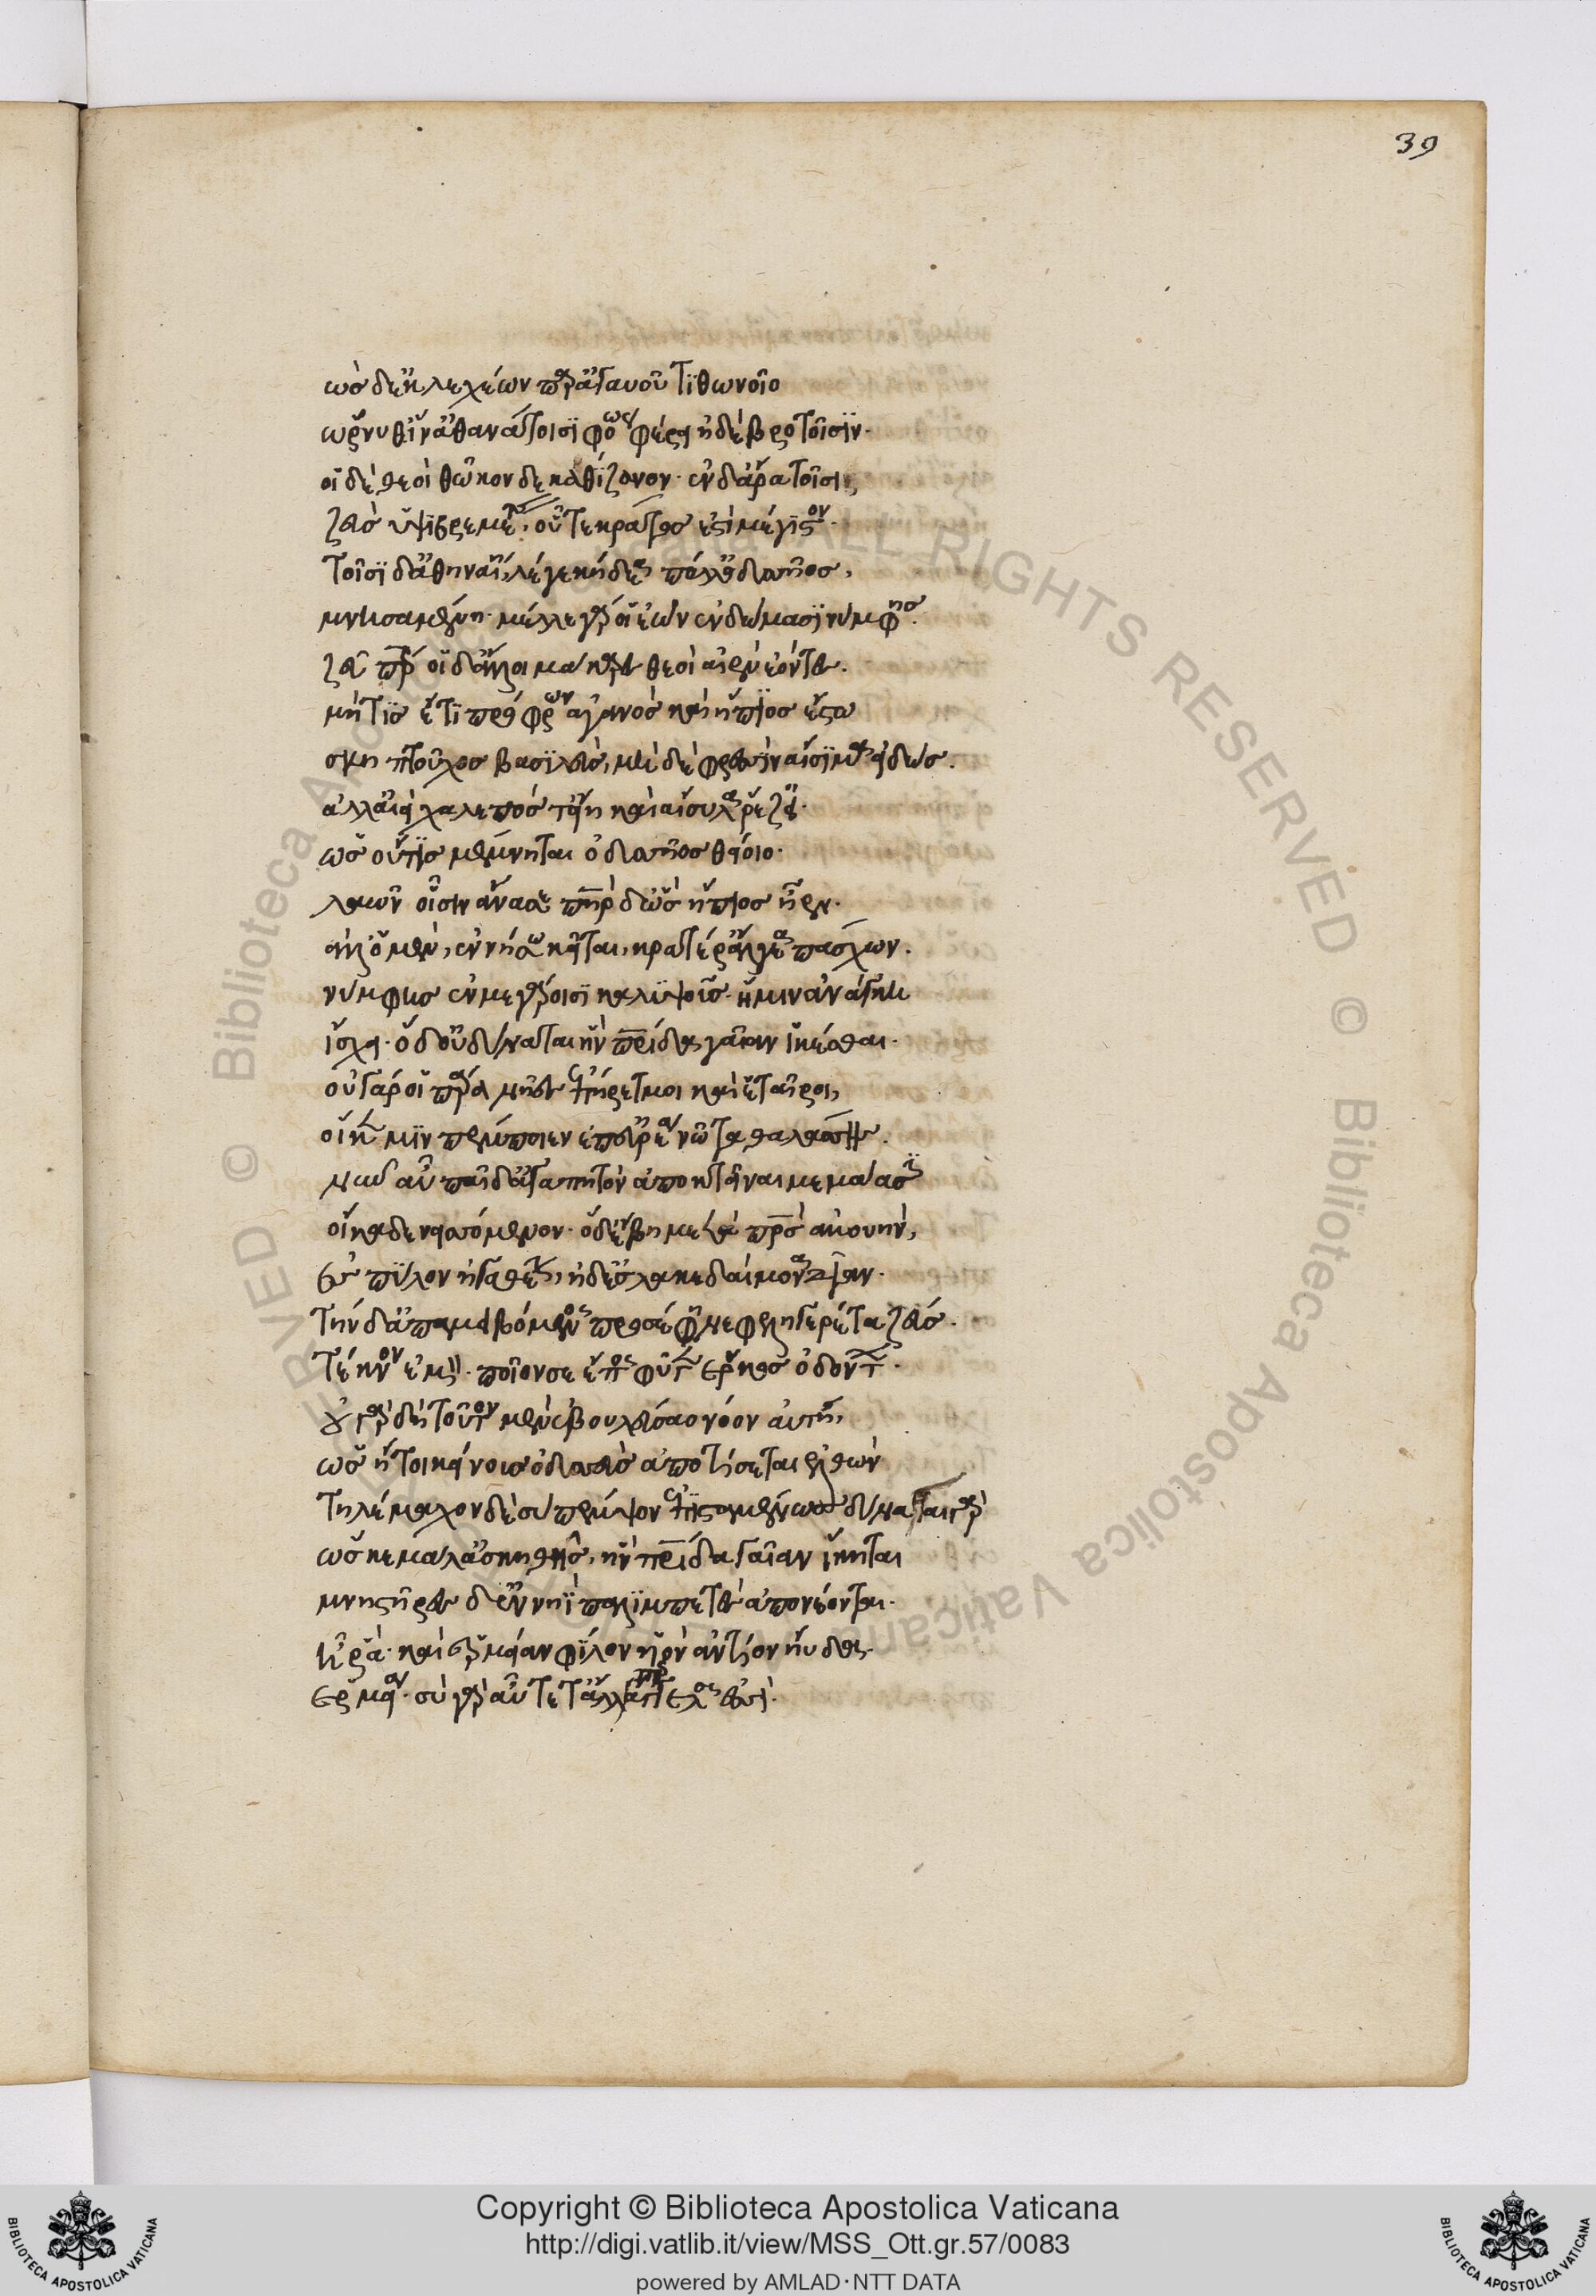 39
ὡσ δ' ἐκ λεχέων παρ' ἀγαυοῦ τιθωνοῖο
ὤρνυθ' ἵν' ἀθανάτοισι φόως φέροι ἠδὲ βροτοῖσιν·
οἱ δὲ θεοὶ θῶκον δε καθίζονον· ἐν δ' ἄρα τοῖσι,
ζεὺσ ὑψιβρεμέτης, οὗτε κράτος ἐστὶ μέγιστον·
τοῖσι δ' ἀθηναίη λέγε κήδεα πόλλ' ὀδυσῆος,
μνησαμένη· μέλε γάρ οἱ ἐὼν ἐν δώμασι νύμφησ·
ζεῦ πάτερ οἱ δ' ἄλλοι μάκαρες θεοὶ αἰὲν ἐόντες.
μήτισ ἔτι πρόφρων ἀγανὸσ καὶ ἤπιοσ ἔστω
σκηπτοῦχοσ βασιλεὺσ, μηδὲ φρεσὶν αἴσιμα εἰδώσ.
ἀλλ' αἰεὶ χαλεπόσ τ' εἴη καὶ αἴσυλα ῥέζοι·
ὡσ οὔτισ μέμνηται ὀδυσῆοσ θείοιο·
λαῶν οἷσιν ἄνασσε πατὴρ δ' ὣσ ἤπιοσ ἦεν·
ἀλλ' ὁ μὲν, ἐν νήσω κεῖται, κρατέρ' ἄλγεα πάσχων.
νύμφησ ἐν μεγάροισι καλυψοῦσ· ἥ μιν ἀνάγκη
ἴσχει· ὁ δ' οὐ δύναται ἣν πατρίδα γαῖαν ἱκέσθαι·
οὐ γάρ οἱ πάρα νῆες ἐπήρετμοι καὶ ἑταῖροι,
οἵ κέν μιν πέμποιεν ἐπ' εὐρέα νῶτα θαλάσσης.
νῦν αὖ παῖδ' ἀγαπητὸν ἀποκτεῖναι μεμάασι
οἴκαδε νεισόμενον· ὁ δ' ἔβη μετὰ πατρὸσ ἀκουὴν,
ἐς πύλον ἠγαθέην, ἠδ' ἐσ λακεδαίμονα δῖαν·
τὴν δ' ἀπαμειβόμενος προσέφη νεφεληγερέτα ζεύσ.
τέκνον ἐμόν· ποῖον σε ἔπος φύγεν ἕρκοσ ὀδόντων·
οὐ γὰρ δὴ τοῦτον μὲν ἐβούλευσασ νόον αὐτὴ,
ὡσ ἤτοι κείνουσ ὀδυσεὺσ ἀποτίσεται ἐλθὼν
τηλέμαχον δὲ σὺ πέμψον ἐπισταμένωσ δύνασαι γὰρ
ὥσ κε μάλ' ἀσκηθὴσ, ἣν πατρίδα γαῖαν ἵκηται
μνηστῆρες δ' ἐν νηῒ παλιμπετὲς ἀπονέονται·
ἦ ῥὰ· καὶ ἑρμείαν φίλον υἱὸν ἀντίον ηὔδα·
ἑρμεία· σὺ γὰρ αὖτε τά τ' ἄλλα περ ἄγγελος ἐσσὶ·
Copyright © Biblioteca Apostolica Vaticana
http://digi.vatlib.it/view/MSS_Ott.gr.57/0083
powered by AMLAD·NTT DATA
BIBLIOTECA APOSTOLICA VATICANA
BIBLIOTECA APOSTOLICA VATICANA
© Biblioteca Apostolica Vaticana ALL RIGHTS RESERVED
© Biblioteca Apostolica Vaticana ALL RIGHTS RESERVED